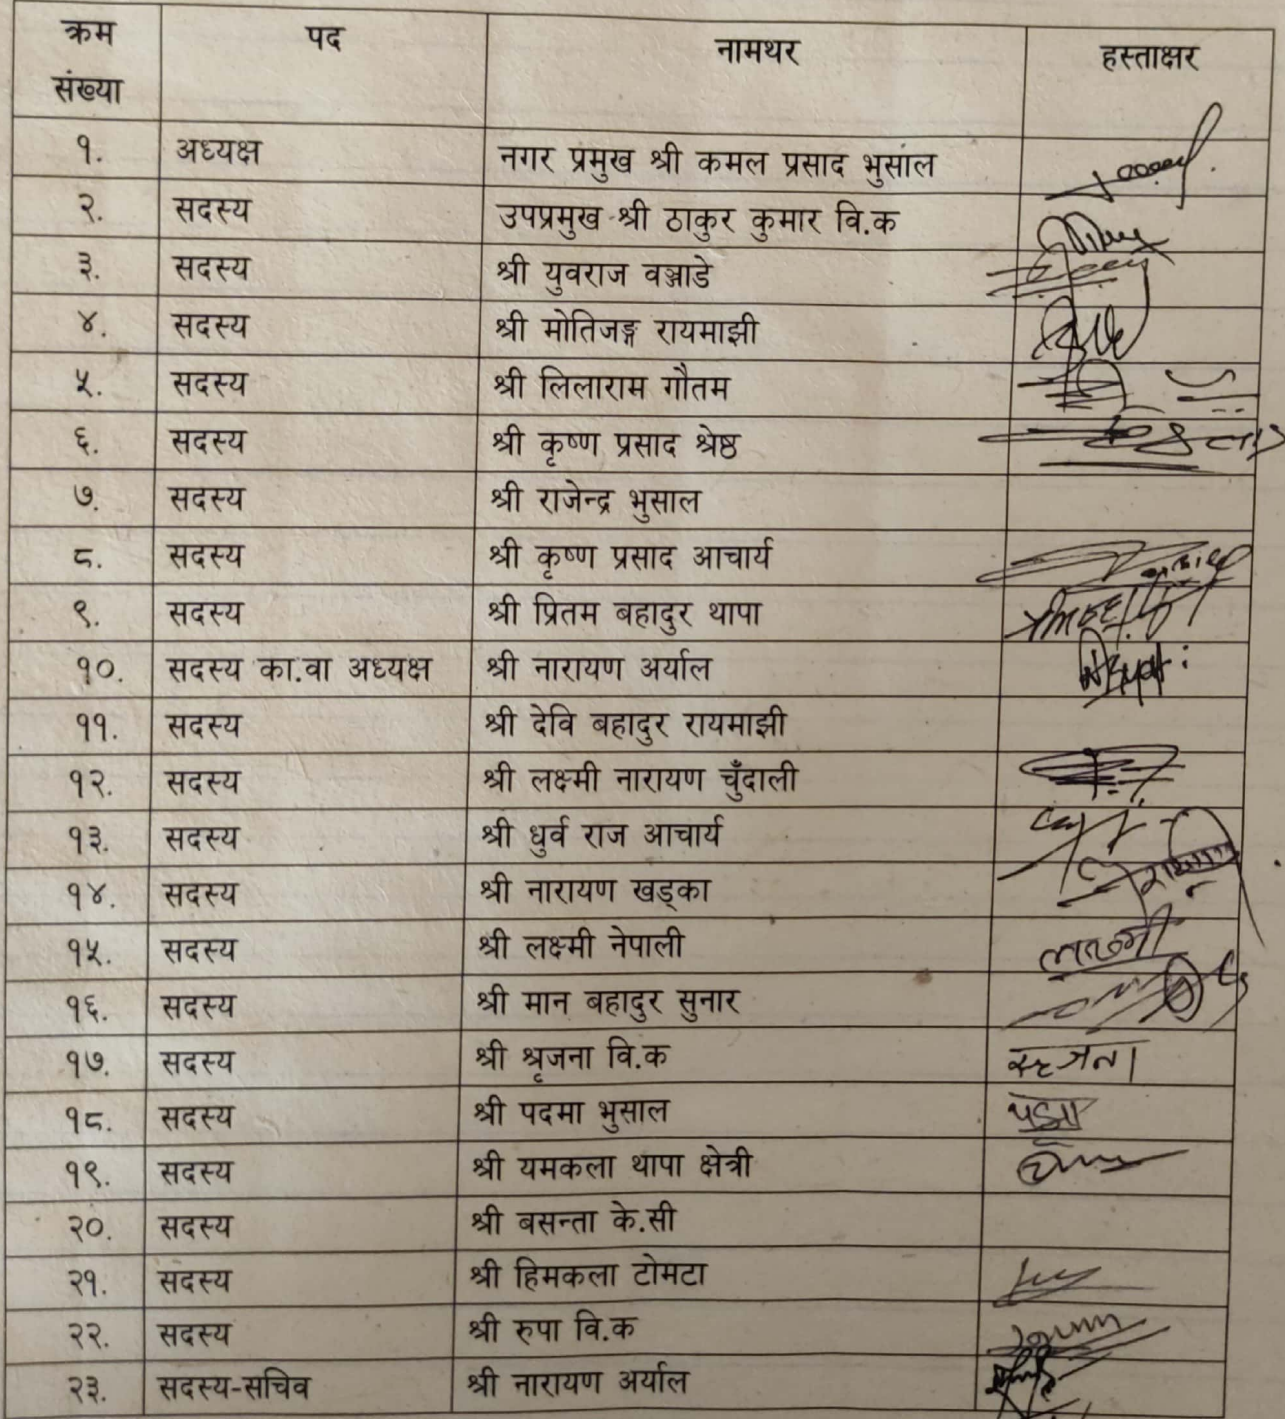 क्रम संख्या पद नामथर हस्ताक्षर
१. अध्यक्ष नगर प्रमुख श्री कमल प्रसाद भुसाल
२. सदस्य उपप्रमुख श्री ठाकुर कुमार वि.क
३. सदस्य श्री युवराज वञ्जाडे
४. सदस्य श्री मोतिजङ्ग रायमाझी
५. सदस्य श्री लिलाराम गौतम
६. सदस्य श्री कृष्ण प्रसाद श्रेष्ठ
७. सदस्य श्री राजेन्द्र भुसाल
८. सदस्य श्री कृष्ण प्रसाद आचार्य
९. सदस्य श्री प्रितम बहादुर थापा
१०. सदस्य का.वा अध्यक्ष श्री नारायण अर्याल
११. सदस्य श्री देवि बहादुर रायमाझी
१२. सदस्य श्री लक्ष्मी नारायण चुँदाली
१३. सदस्य श्री धुर्व राज आचार्य
१४. सदस्य श्री नारायण खड्का
१५. सदस्य श्री लक्ष्मी नेपाली
१६. सदस्य श्री मान बहादुर सुनार
१७. सदस्य श्री श्रृजना वि.क
१८. सदस्य श्री पदमा भुसाल
१९. सदस्य श्री यमकला थापा क्षेत्री
२०. सदस्य श्री बसन्ता के.सी
२१. सदस्य श्री हिमकला टोमटा
२२. सदस्य श्री रुपा वि.क
२३. सदस्य-सचिव श्री नारायण अर्याल